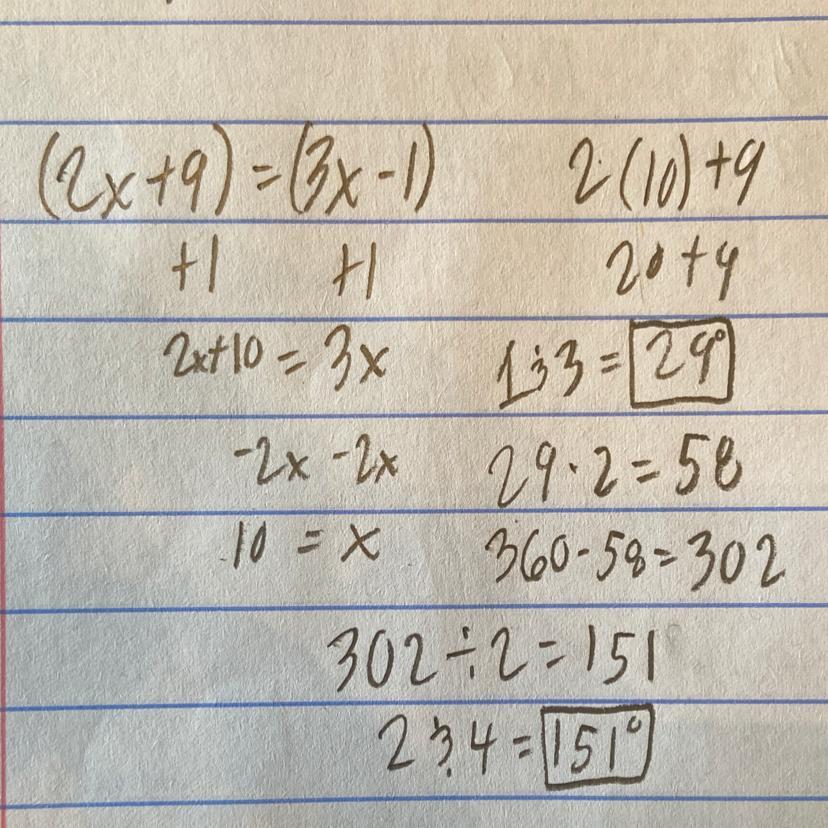 (2x+9) = (3x-1)
+1 +1
2x+10 = 3x
-2x -2x
10 = x
2(10)+9
20+9
1&3 = 29°
29·2=58
360-58=302
302÷2=151
2&4=151°